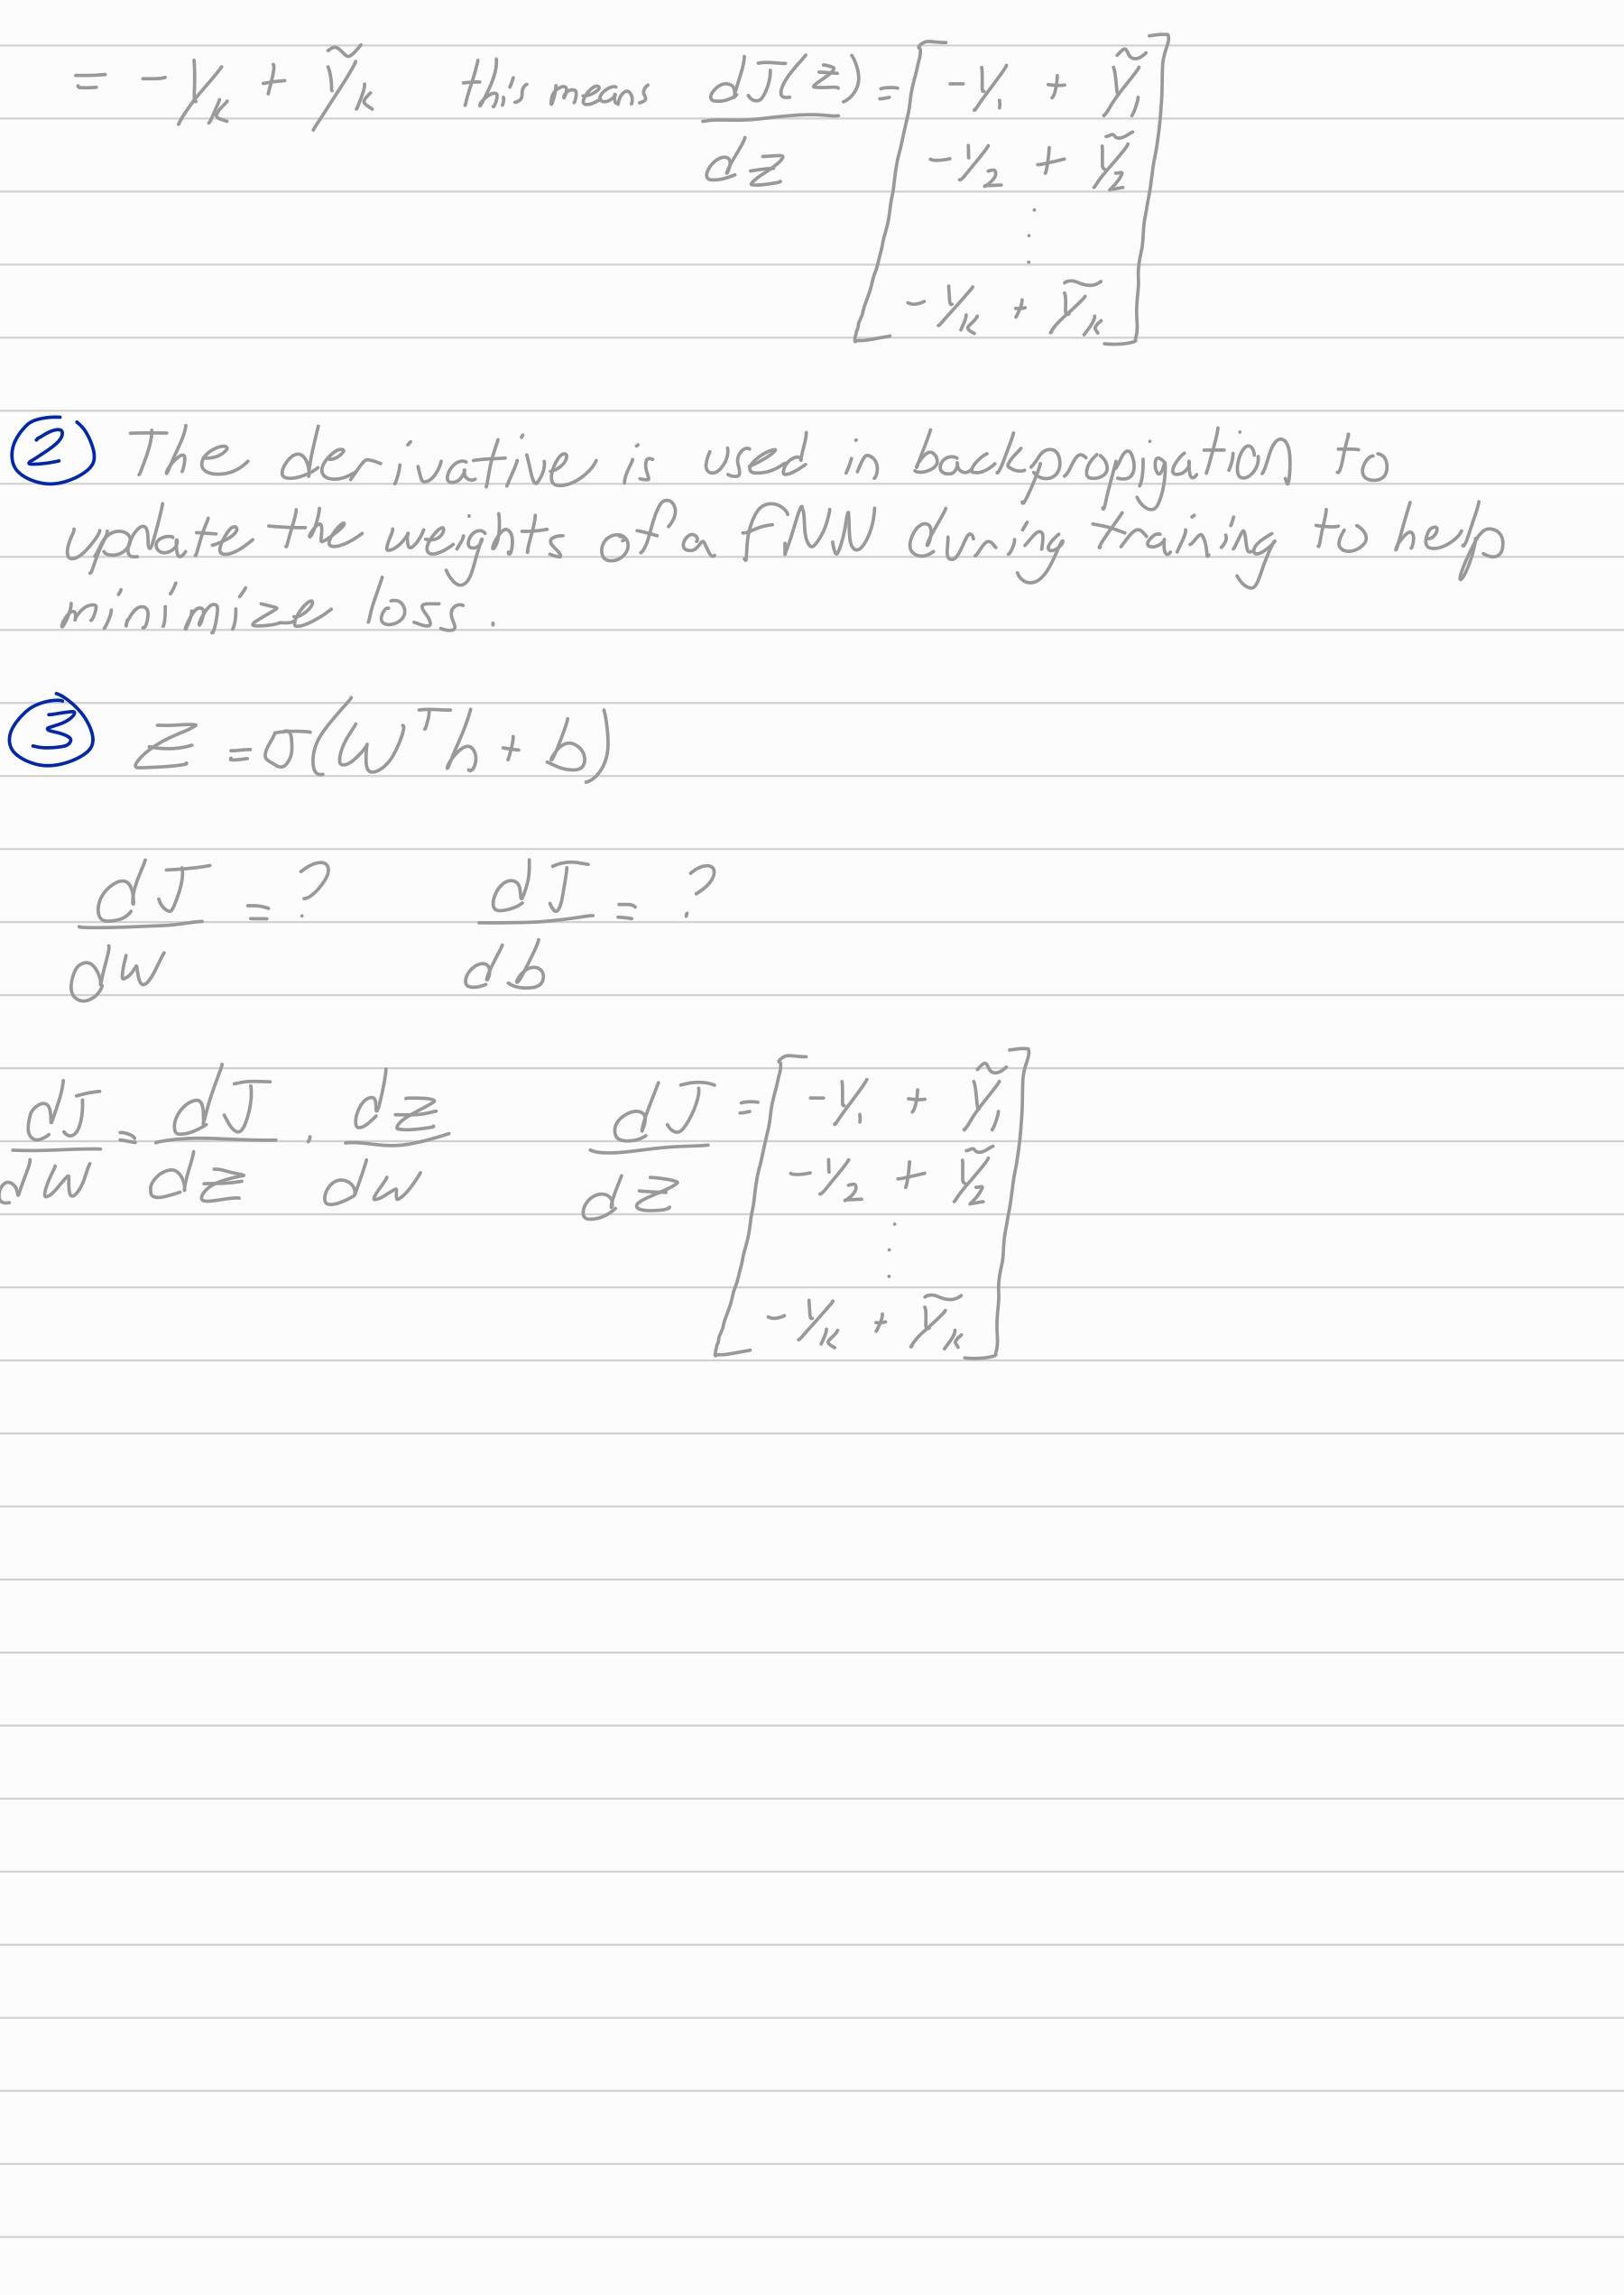 = - Y_k + Ỹ_k this means dJ(z)/dz = [ -Y_1 + Ỹ_1
-Y_2 + Ỹ_2
⋮
-Y_k + Ỹ_k ]
② The derivative is used in backpropagation to
update the weights of a fNN during training to help
minimize loss.
③ Z = σ(W^T h + b)
dJ/dw = ? dJ/db = ?
dJ/dW = dJ/dz · dz/dw dJ/dz = [ -Y_1 + Ỹ_1
-Y_2 + Ỹ_2
⋮
-Y_k + Ỹ_k ]